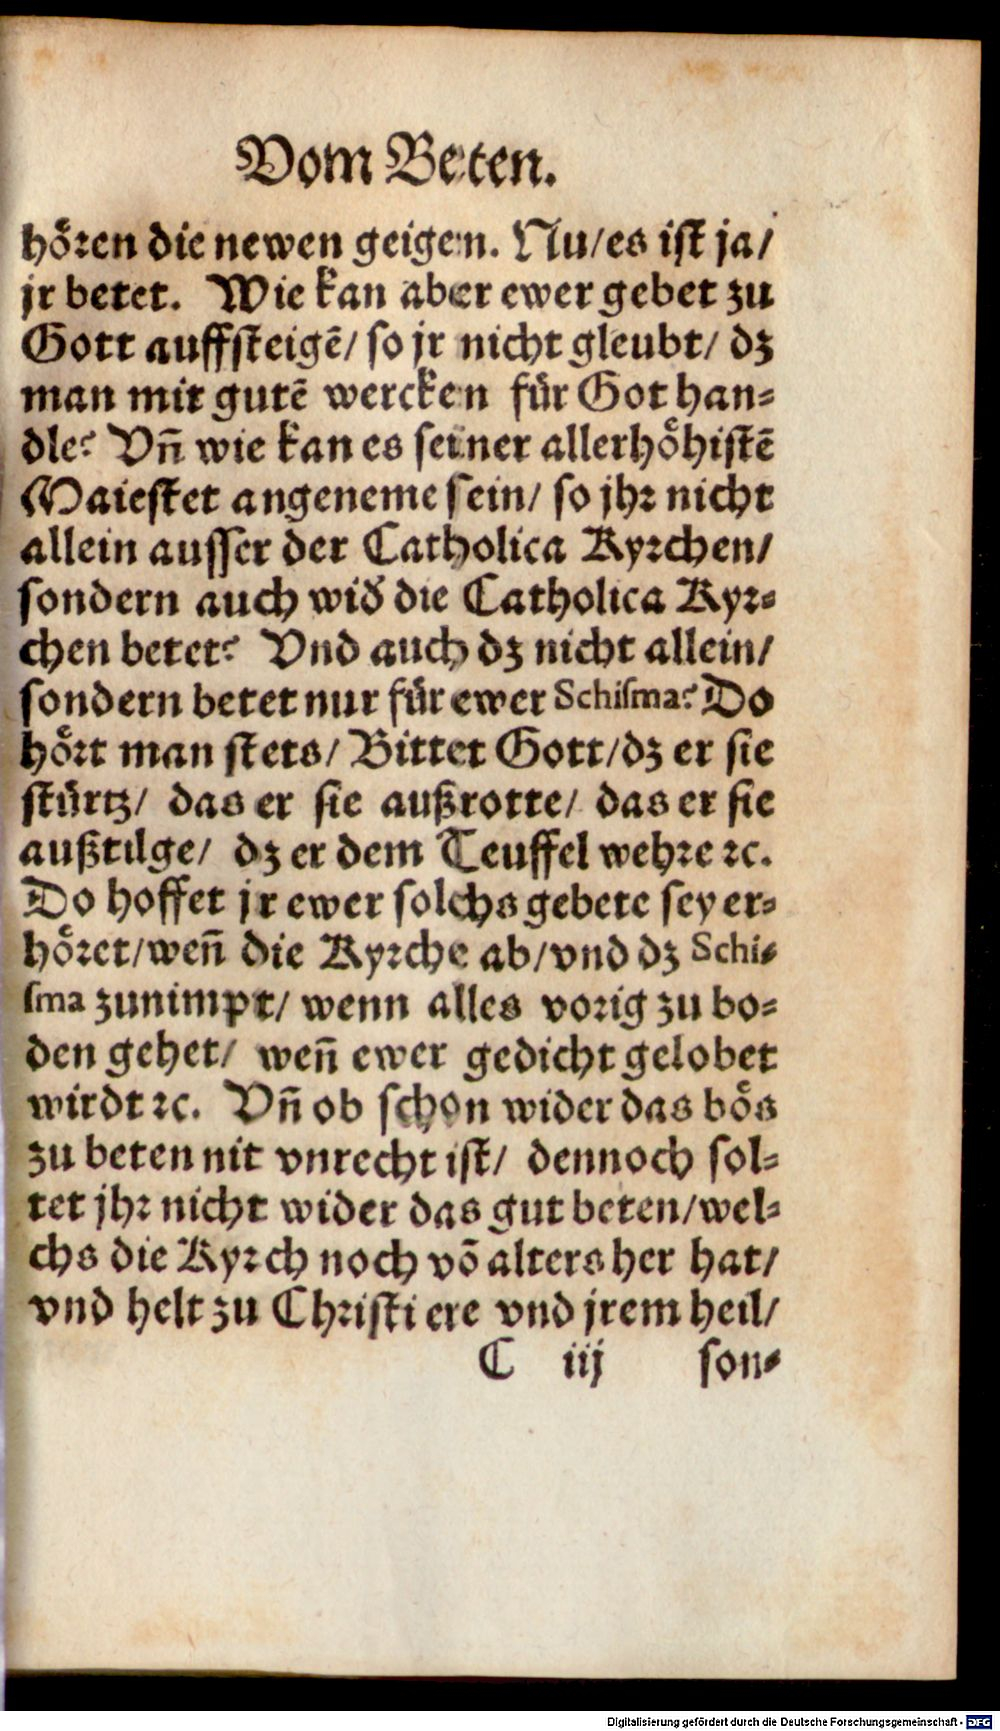 Vom Beten.
hoͤren die newen geigen. Nu/es ist ja/
jr betet. Wie kan aber ewer gebet zu
Gott auffsteigẽ/ so jr nicht gleubt/ dz
man mit gutẽ wercken für Got han⸗
dle? Vñ wie kan es seiner allerhoͤhistẽ
Maiestet angeneme sein/ so jhr nicht
allein ausser der Catholica Kyrchen/
sondern auch wid̕ die Catholica Kyr⸗
chen betet? Vnd auch dz nicht allein/
sondern betet nur für ewer Schisma? Do
hoͤrt man stets/ Bittet Gott/dz er sie
stürtz/ das er sie außrotte/ das er sie
außtilge/ dz er dem Teuffel wehre ꝛc.
Do hoffet jr ewer solchs gebete sey er⸗
hoͤret/weñ die Kyrche ab/vnd dz Schi⸗
sma zunimpt/ wenn alles vorig zu bo⸗
den gehet/ weñ ewer gedicht gelobet
wirdt ꝛc. Vñ ob schon wider das boͤs
zu beten nit vnrecht ist/ dennoch sol⸗
tet jhr nicht wider das gut beten/wel⸗
chs die Kyrch noch võ alters her hat/
vnd helt zu Christi ere vnd jrem heil/
C iij son⸗
Digitalisierung gefördert durch die Deutsche Forschungsgemeinschaft - DFG